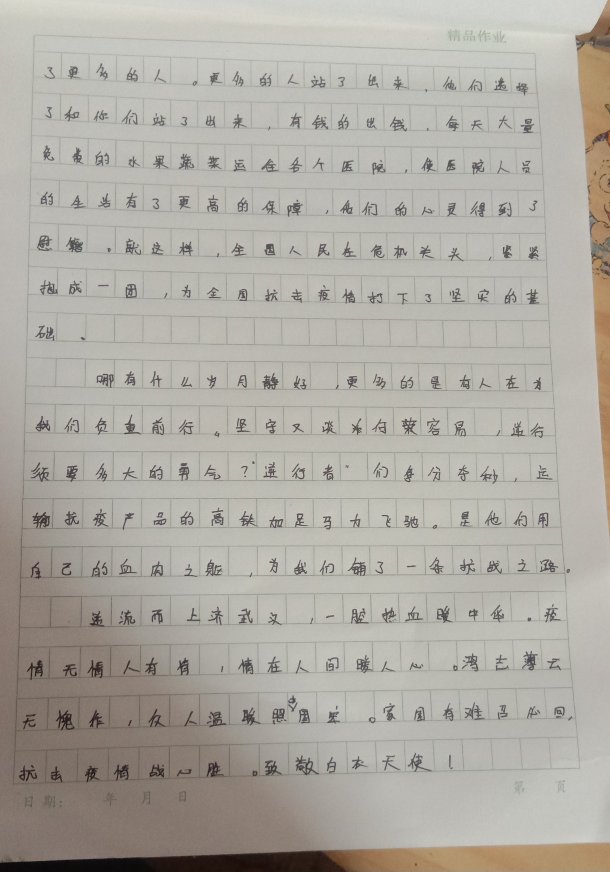 精品作业
了更多的人。更多的人站了出来，他们选择
了和你们站了出来，有钱的出钱，每天大量
免费的水果蔬菜运在各个医院，使医院人员
的生活有了更高的保障，他们的心灵得到了
慰籍。就这样，全国人民在危机关头，紧紧
抱成一团，为全国抗击疫情打下了坚实的基
础。
哪有什么岁月静好，更多的是有人在为
我们负重前行。坚守又谈为何荣容易，逆行
须要多大的勇气？“逆行者”们争分夺秒，运
输抗疫产品的高铁加足马力飞驰。是他们用
自己的血肉之躯，为我们铺了一条抗战之路。
逆流而上济武汉，一腔热血暖中华。疫
情无情人有情，情在人间暖人心。鸿志尊云
无愧作，众人温暖照国家。家国有难召必回，
抗击疫情战心胜。致敬白衣天使！
日期： 年 月 日 第 页